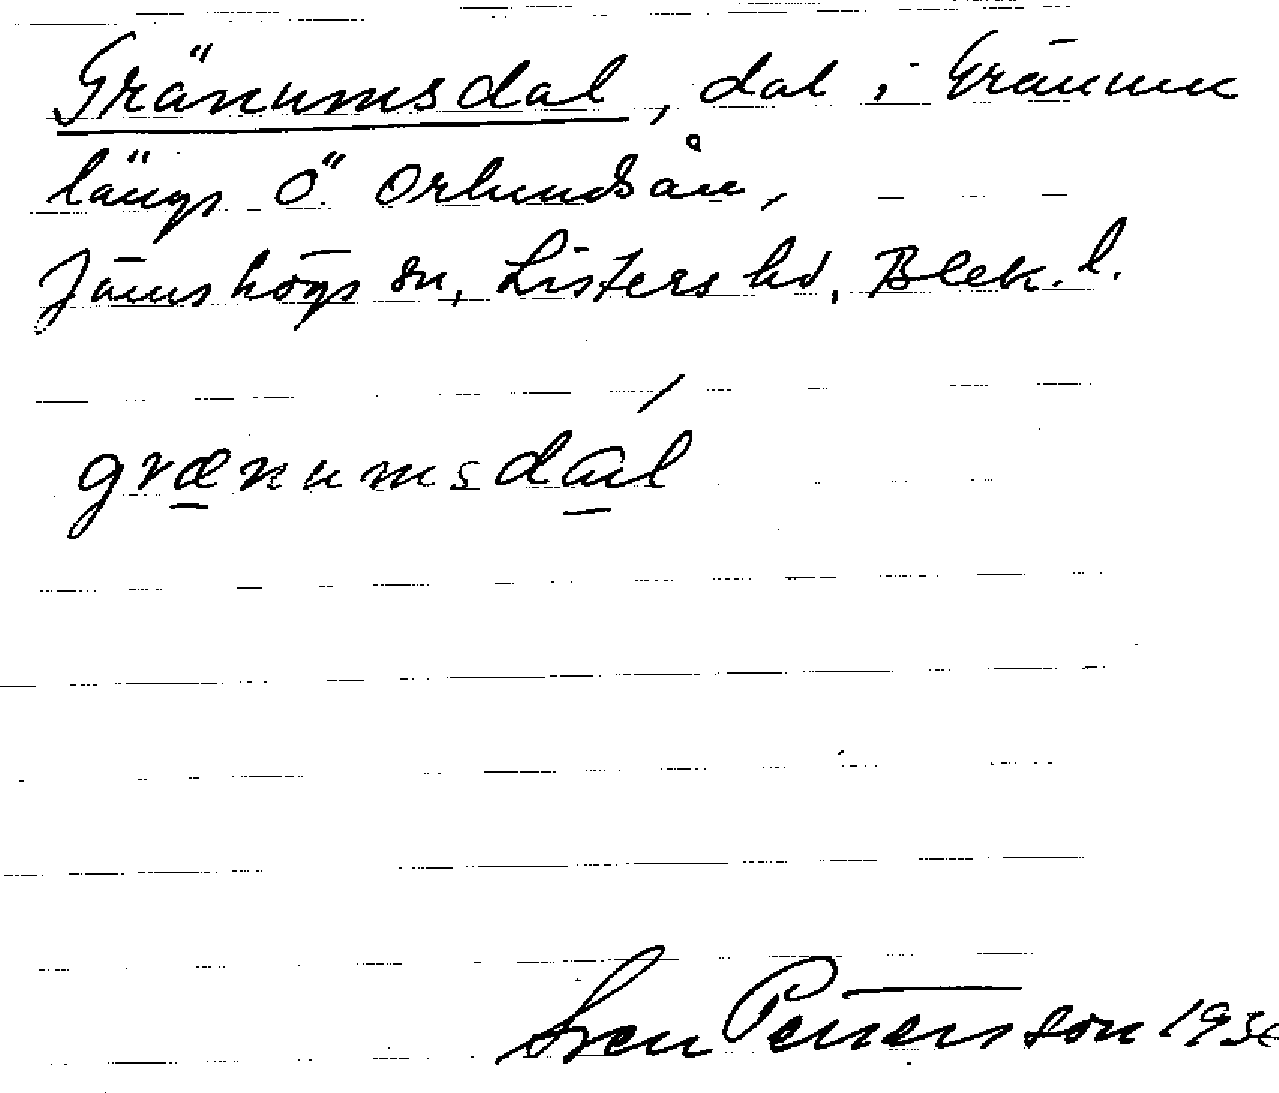 Gränumsdal, dal i Gränum
längs Ö Orlundsån,
Jämshögs sn, Listers hd, Blek. l.
grænumsdal
Sven Pettersson